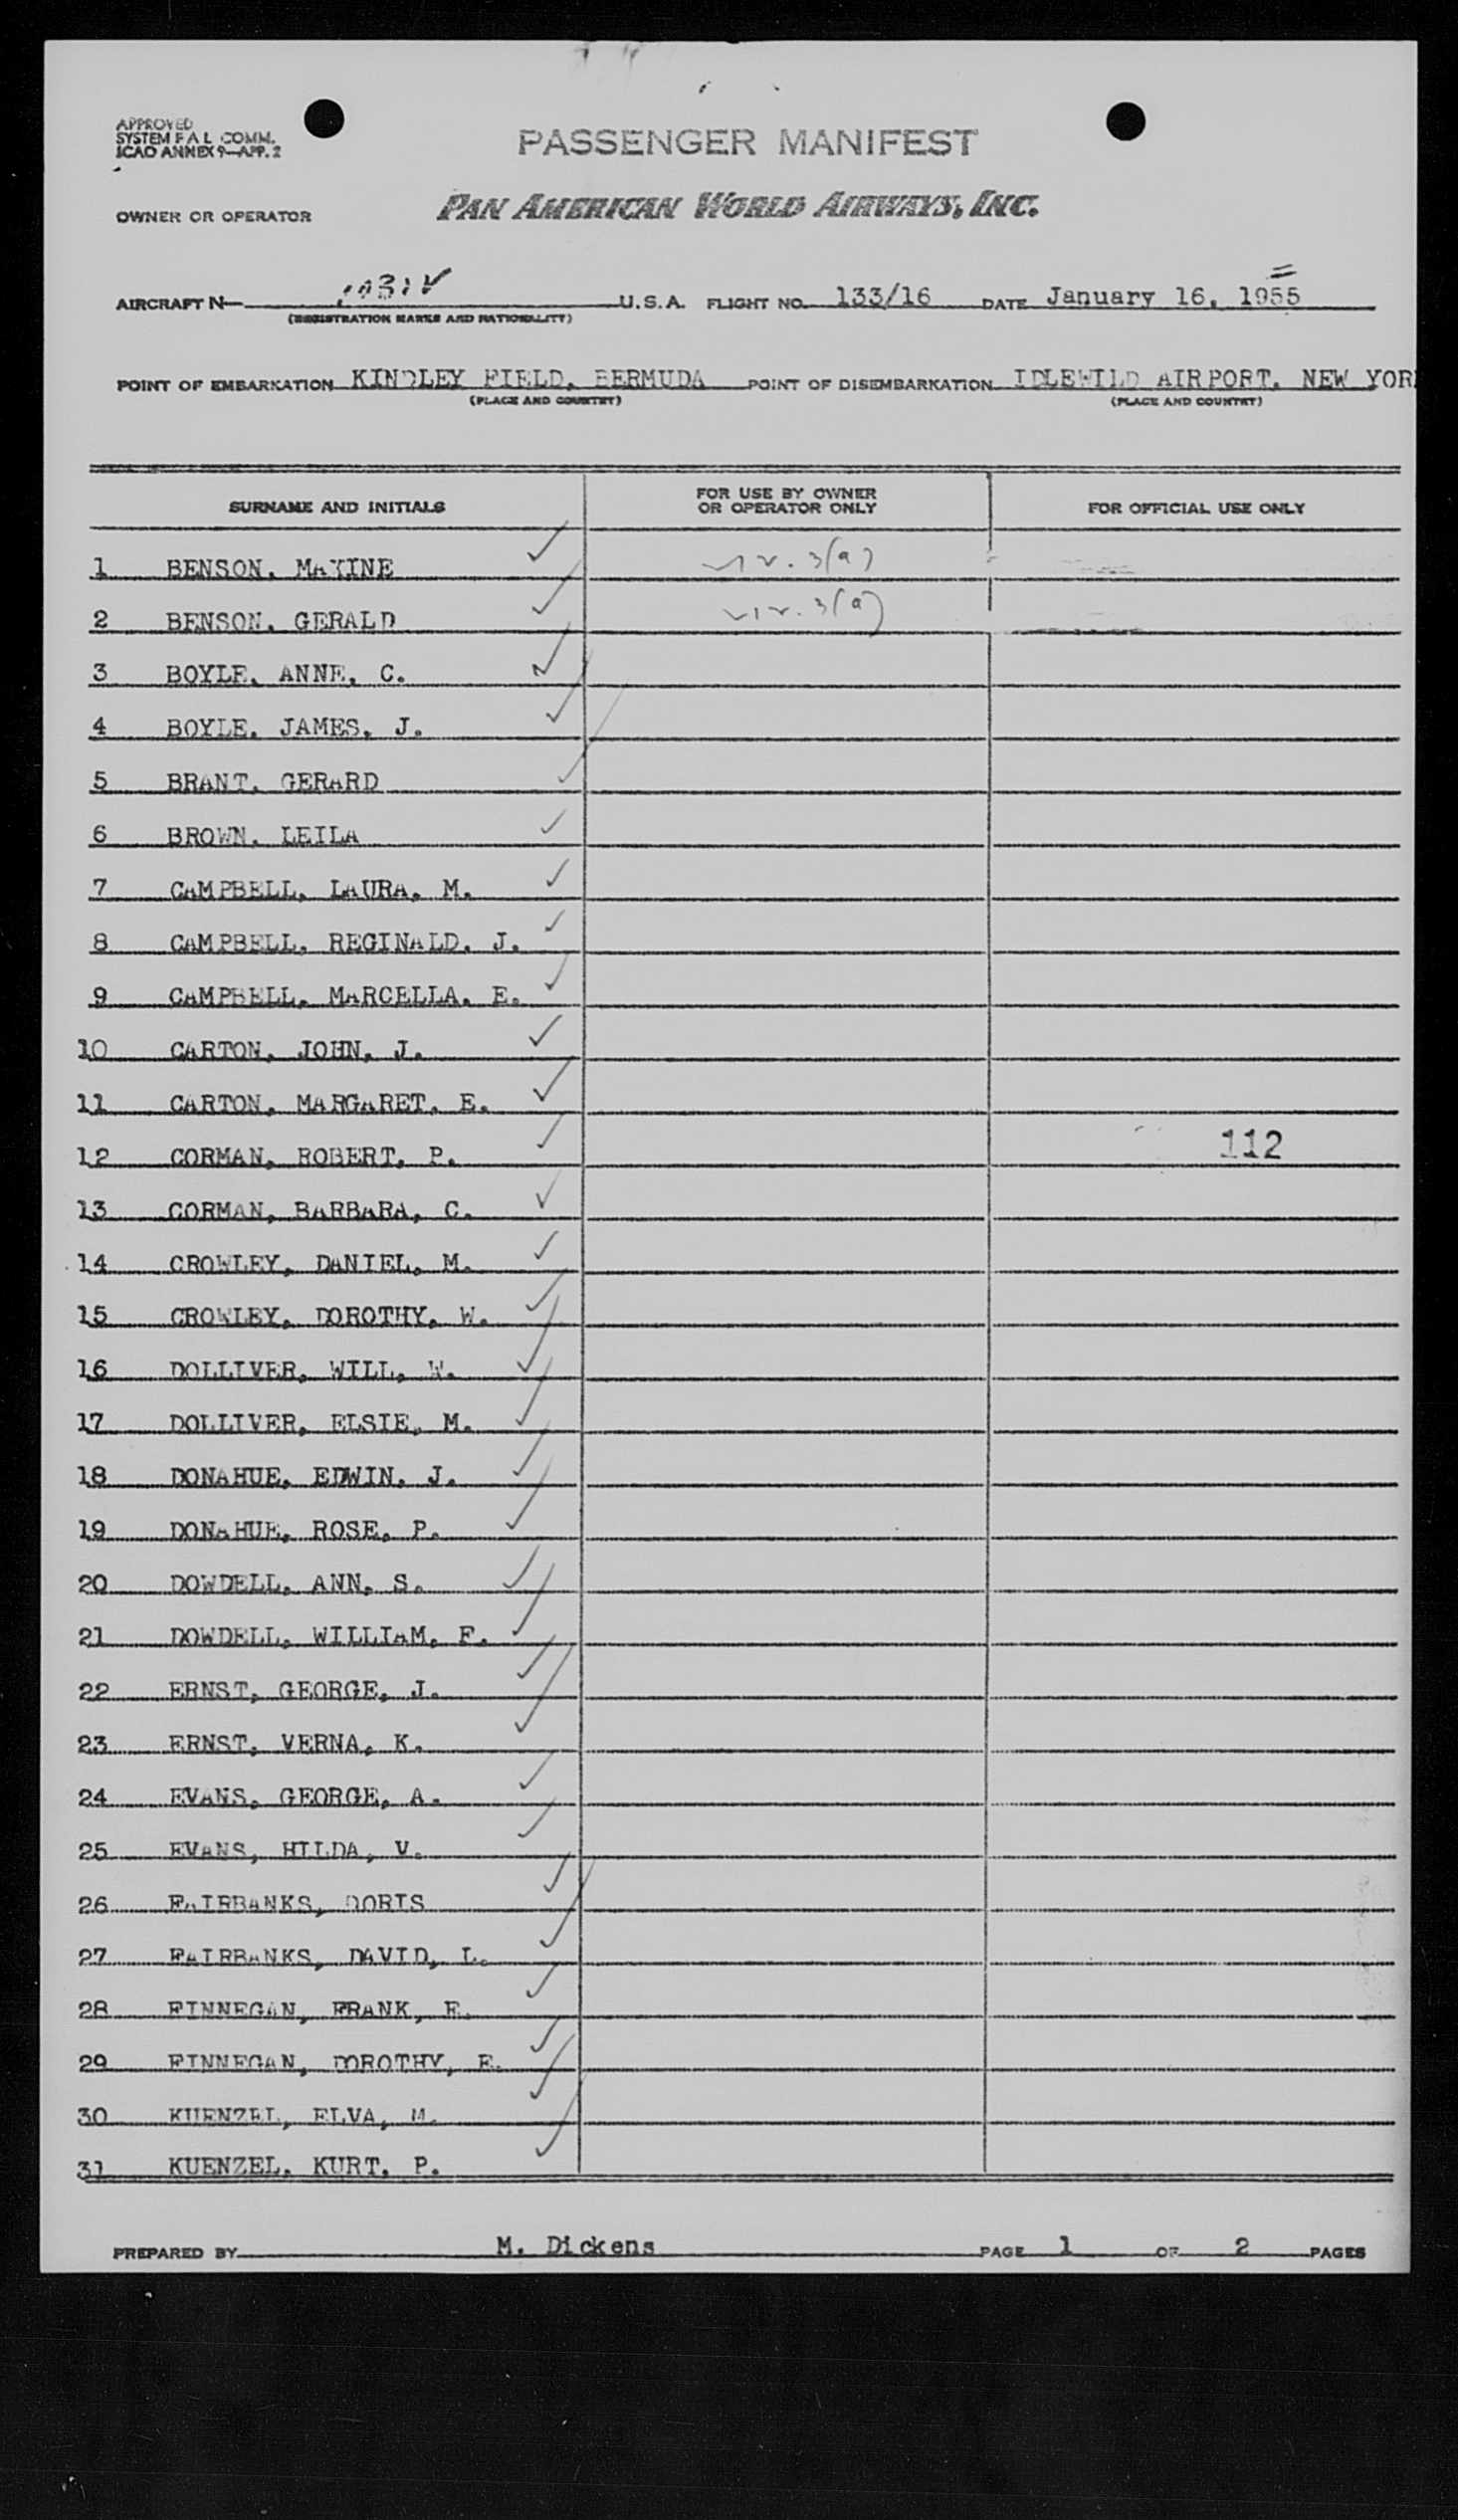 APPROVED
SYSTEM F A L COMM.
ICAO ANNEX 9—APP. 2
PASSENGER MANIFEST
OWNER OR OPERATOR PAN AMERICAN WORLD AIRWAYS, INC.
AIRCRAFT N— U.S.A. FLIGHT NO. 133/16 DATE January 16, 1955
(REGISTRATION MARKS AND NATIONALITY)
POINT OF EMBARKATION KINDLEY FIELD, BERMUDA POINT OF DISEMBARKATION IDLEWILD AIRPORT, NEW YOR
(PLACE AND COUNTRY) (PLACE AND COUNTRY)
SURNAME AND INITIALS FOR USE BY OWNER OR OPERATOR ONLY FOR OFFICIAL USE ONLY
1 BENSON, MAXINE 3(a)
2 BENSON, GERALD 3(a)
3 BOYLE, ANNE, C.
4 BOYLE, JAMES, J.
5 BRANT, GERARD
6 BROWN, LEILA
7 CAMPBELL, LAURA, M.
8 CAMPBELL, REGINALD, J.
9 CAMPBELL, MARCELLA, E.
10 CARTON, JOHN, J.
11 CARTON, MARGARET, E.
12 CORMAN, ROBERT, P. 112
13 CORMAN, BARBARA, C.
14 CROWLEY, DANIEL, M.
15 CROWLEY, DOROTHY, W.
16 DOLLIVER, WILL, W.
17 DOLLIVER, ELSIE, M.
18 DONAHUE, EDWIN, J.
19 DONAHUE, ROSE, P.
20 DOWDELL, ANN, S.
21 DOWDELL, WILLIAM, F.
22 ERNST, GEORGE, J.
23 ERNST, VERNA, K.
24 EVANS, GEORGE, A.
25 EVANS, HILDA, V.
26 FAIRBANKS, DORIS
27 FAIRBANKS, DAVID, L.
28 FINNEGAN, FRANK, E.
29 FINNEGAN, DOROTHY, E.
30 KUENZEL, ELVA, M.
31 KUENZEL, KURT, P.
PREPARED BY M. Dickens PAGE 1 OF 2 PAGES